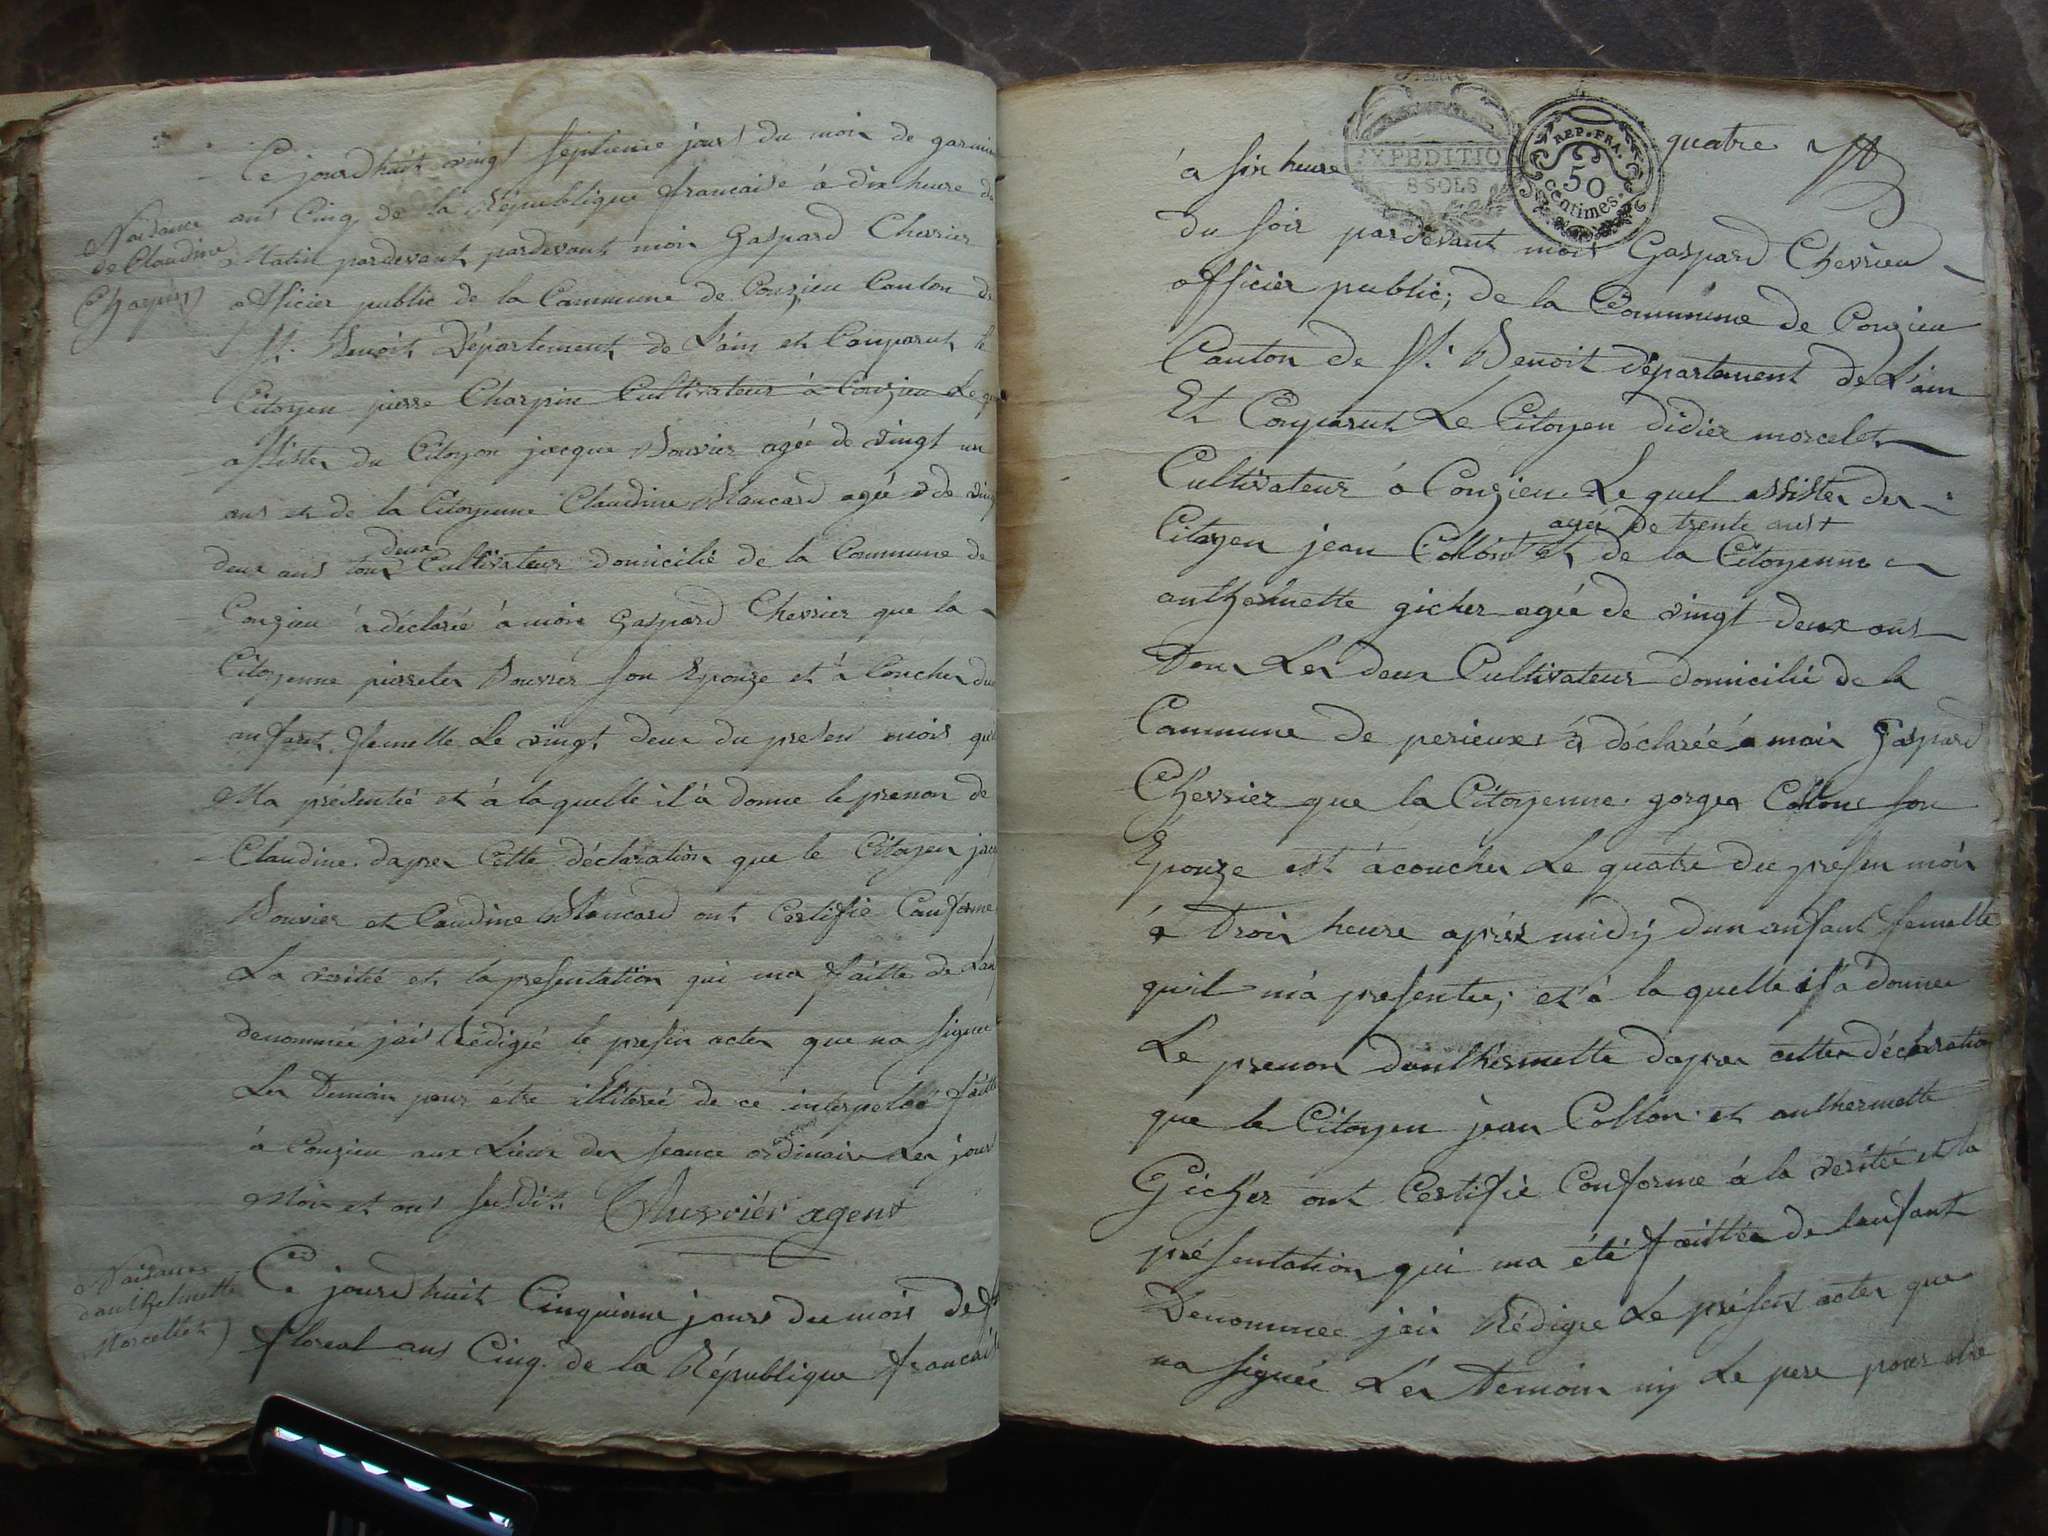 Naisance
de Claudine
Charpin
Ce jourdhuit vingt septieme jours du mois de germin
ans Cinq de la République francaise à dix heure du
Matin pardevant pardevant moi Gaspard Chevrier
officier public de la Commune de Conzieu Canton de
St. Benoit Département de L'ain et Comparut le
Citoyen pierre Charpin Cultivateur à Conzieu Le q
assister du Citoyen jacque Bouvier agée de vingt un
ans et de la Citoyenne Claudine Blancard agée de vingt
deux ans tous deux Cultivateur domicilié de la Commune de
Conzieu à déclarée à moi Gaspard Chevrier que la
Citoyenne pierreter Bouvier son Epouze et à Coucher dun
anfant femelle Le vingt deux du presen mois quil
Ma présentée et à laquelle il à donne le prenon de
Claudine daprer Cette déclaration que le Citoyen jacq
Bouvier et Caudine Blancard ont Certifié Conforme
La verité et la presentation qui ma faitte de Lanf
denommée jai Rédigée le presen acter que na signee
Ler Temoin pour être illiterée de ce interpellé faitte
à Conzieu aux Lieux der seance ordinaire Ler jour
Moir et ans susdit Chevrier agent
Naisance
danthelmette
Morcellet
Ce jourdhuit Cinquieme jours du mois de
floreal ans Cinq de la République francaise
quatre
EXPEDITION
8 SOLS
REP. FRA.
50
centimes.
à six heure
du soir pardevant moi Gaspard Chevrieu
officier public; de la Commune de Conzieu
Canton de St. Benoit département de L'ain
Et Comparut Le Citoyen didier morcelet
Cultivateur à Conzieu Le quel assister der
Citoyen jean Collont agée de trente ans et de la Citoyenne
anthermette gicher agée de vingt deux ans
Tour Ler deux Cultivateur domicilié de la
Commune de perieux à déclarée à moir Gaspard
Chevrier que la Citoyenne gorger Collone son
Épouze est àcoucher Le quatre du presen moir
à Troir heure aprés midÿ dun anfant femelle
quil m'a presentee; et à la quelle il à donnee
Le prenon danthermette daprer cetter déclaration
que le Citoyen jean Collon et anthermette
Gicher ont Certifié Conforme à la veritée et la
présentation qui ma été faittée de lanfant
Denommee jai Rédigee Le présent acter que
na signée Ler Temoin nÿ Le pere pour etre